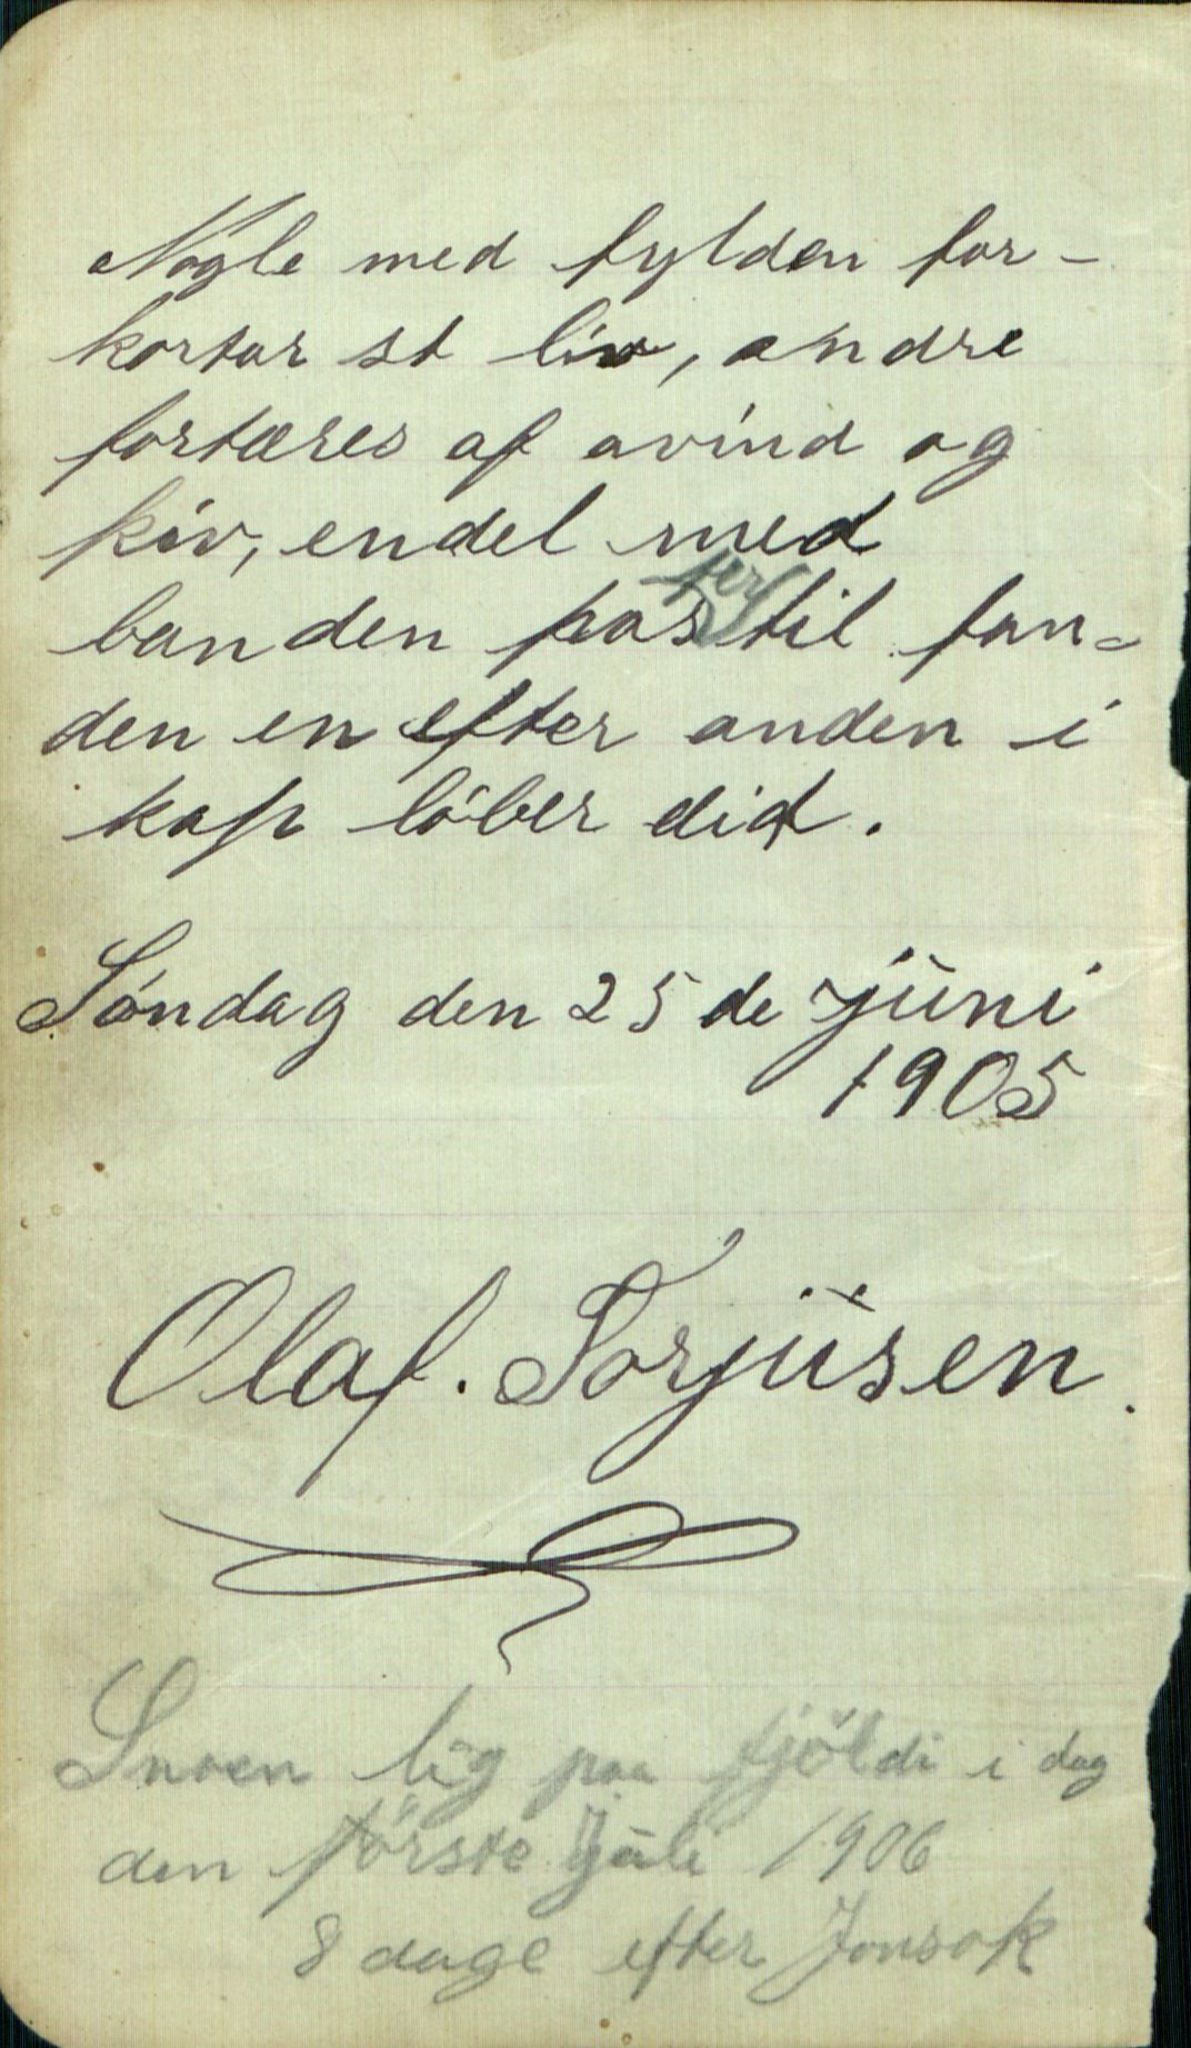 Nogle med fylden for-
kortar st liv, andre
fortæres af avind og
kiv, endel med
fer
banden pas til fan=
den en efter anden i
kap löber did.
Söndag den 25 de juni
1905
Olaf. Torjusen.
Sneen lig paa fjöldi i dag
den förste Juli 1906
8 dage efter Jonsok